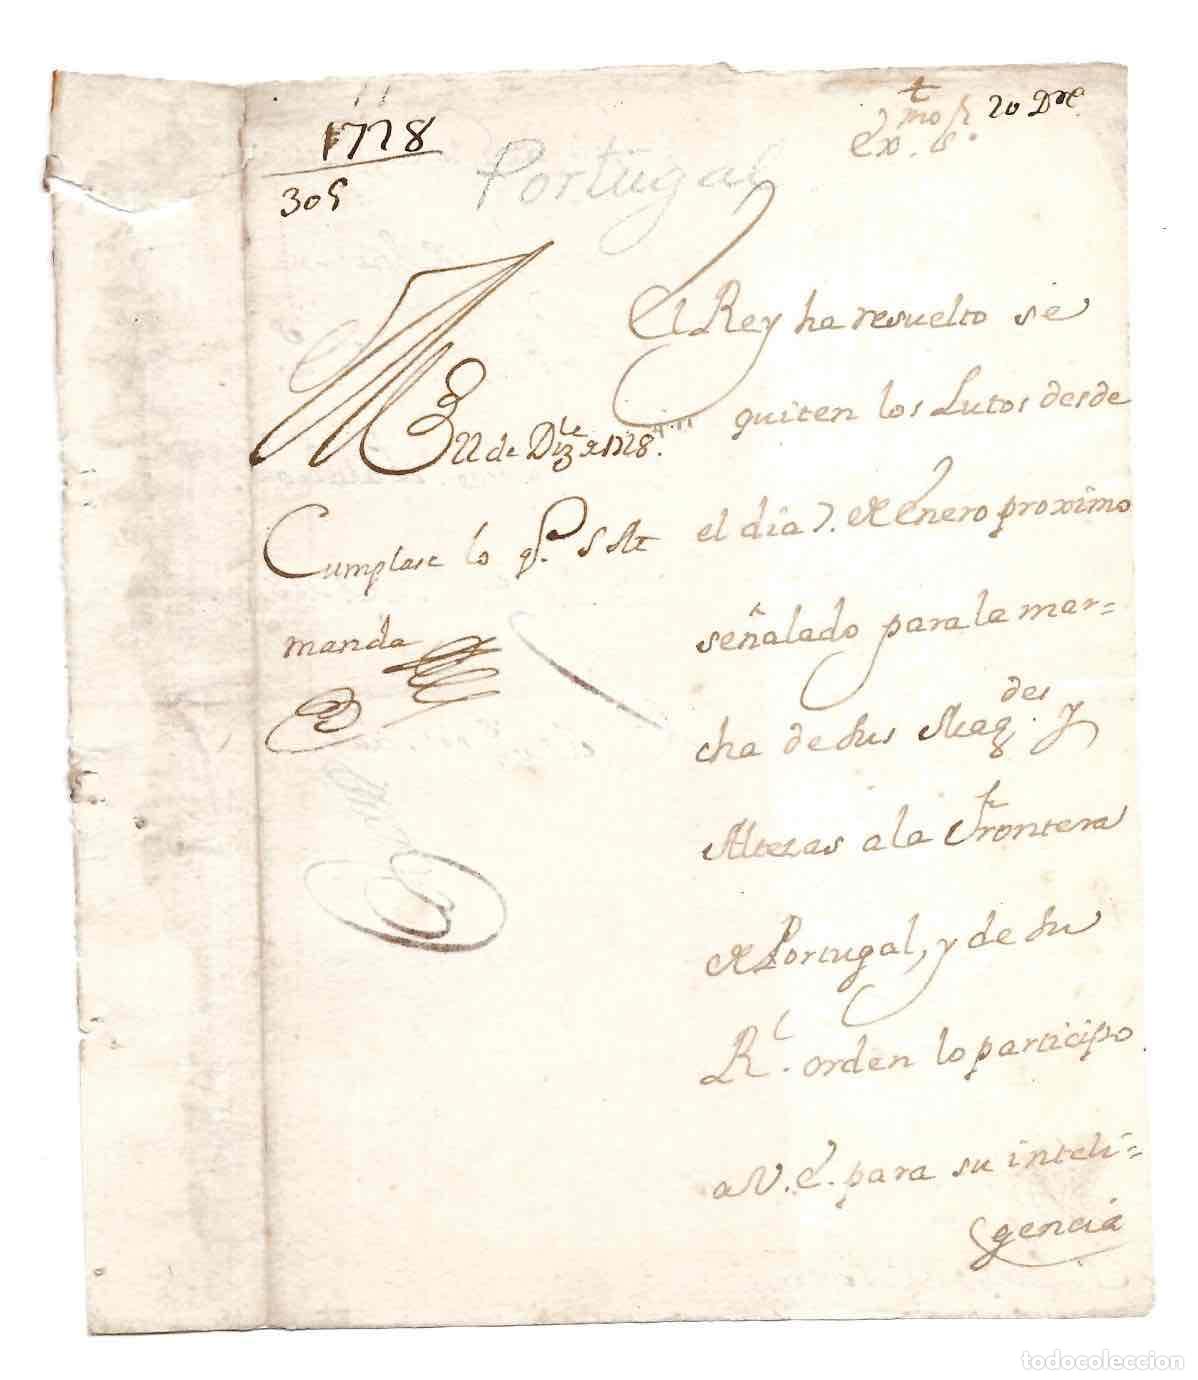 1728
305
Portugal
Ex.mo S.r
20 Dre
El Rey ha resuelto se
quiten los Lutos desde
el dia 7. de Enero proximo
señalado para la mar=
cha de sus Mag.des y
Altezas a la Frontera
de Portugal, y de su
R.l orden lo participo
a V. E. para su inteli=
gencia
22 de Diz.re de 1728.
Cumplase lo q.e S M
manda
todocoleccion